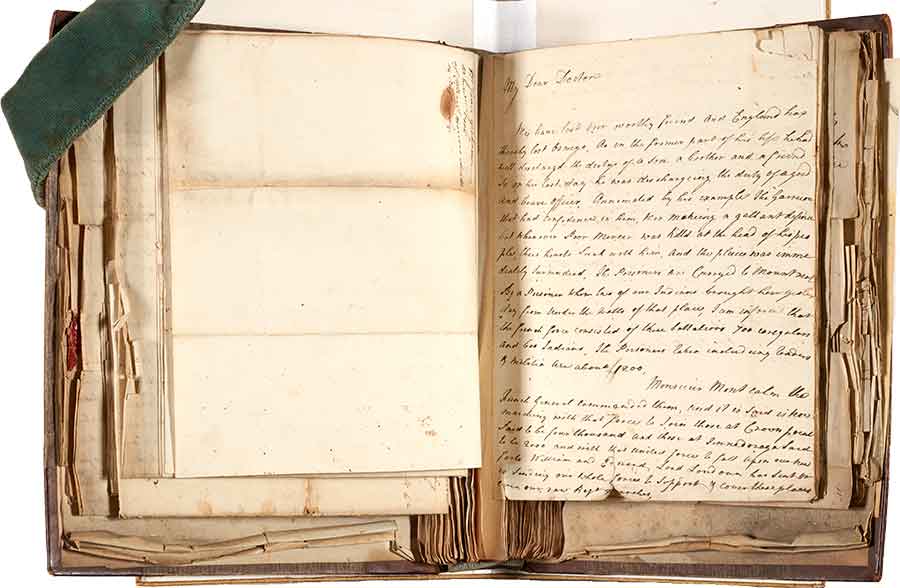 My Dear Doctor
We have lost our worthy friend and England has
thereby lost Oswego, As in the former part of his life he had
well discharged the dutys of a son a brother and a friend
So in his last day he was discharging the duty of a good
and brave officer, Annimated by his example the Garrison
that had confidence in him, were making a gallant defence
but whenever poor Mercer was killd at the head of his peo
ple, their hearts sunk with him, and the place was imme
diately surrendred, The Prisoners are Conveyed to Montreal
By a Prisoner whom two of our Indians brought here yester
day from under the walls of that place, I am informed that
the french force consisted of three battalions 700 iregulars
and 600 Indians. The Prisoners taken including traders
& militia are about 1200.
Monsieur Montcalm the
french General commanded them, and it is Said is now
marching with that force to Join those at Crown point
Said to be four thousand and those at Said
to be 2000 and with that united force to fall upon our two
forts William and Edward, Lord Loudoun has Sent or
is Sending our whole forces to Support & cover these places
our new